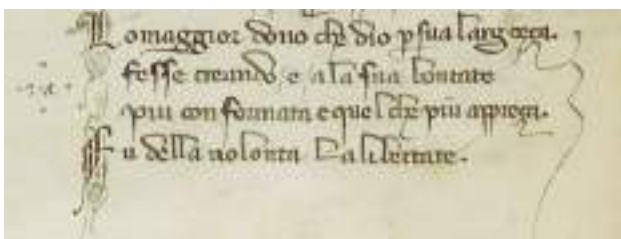 Lomaggior dono che dio p sua largeça.
fesse creando, e ala sua bontate
piu con formata e quel che piu appreça.
Fu della uolonta la libertate.